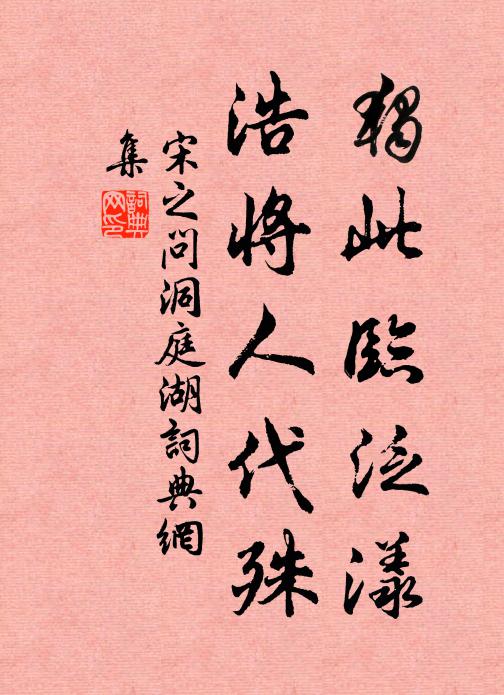 獨此臨泛漾
浩將人代殊
宋之問洞庭湖詞典網
集
詞典
网印